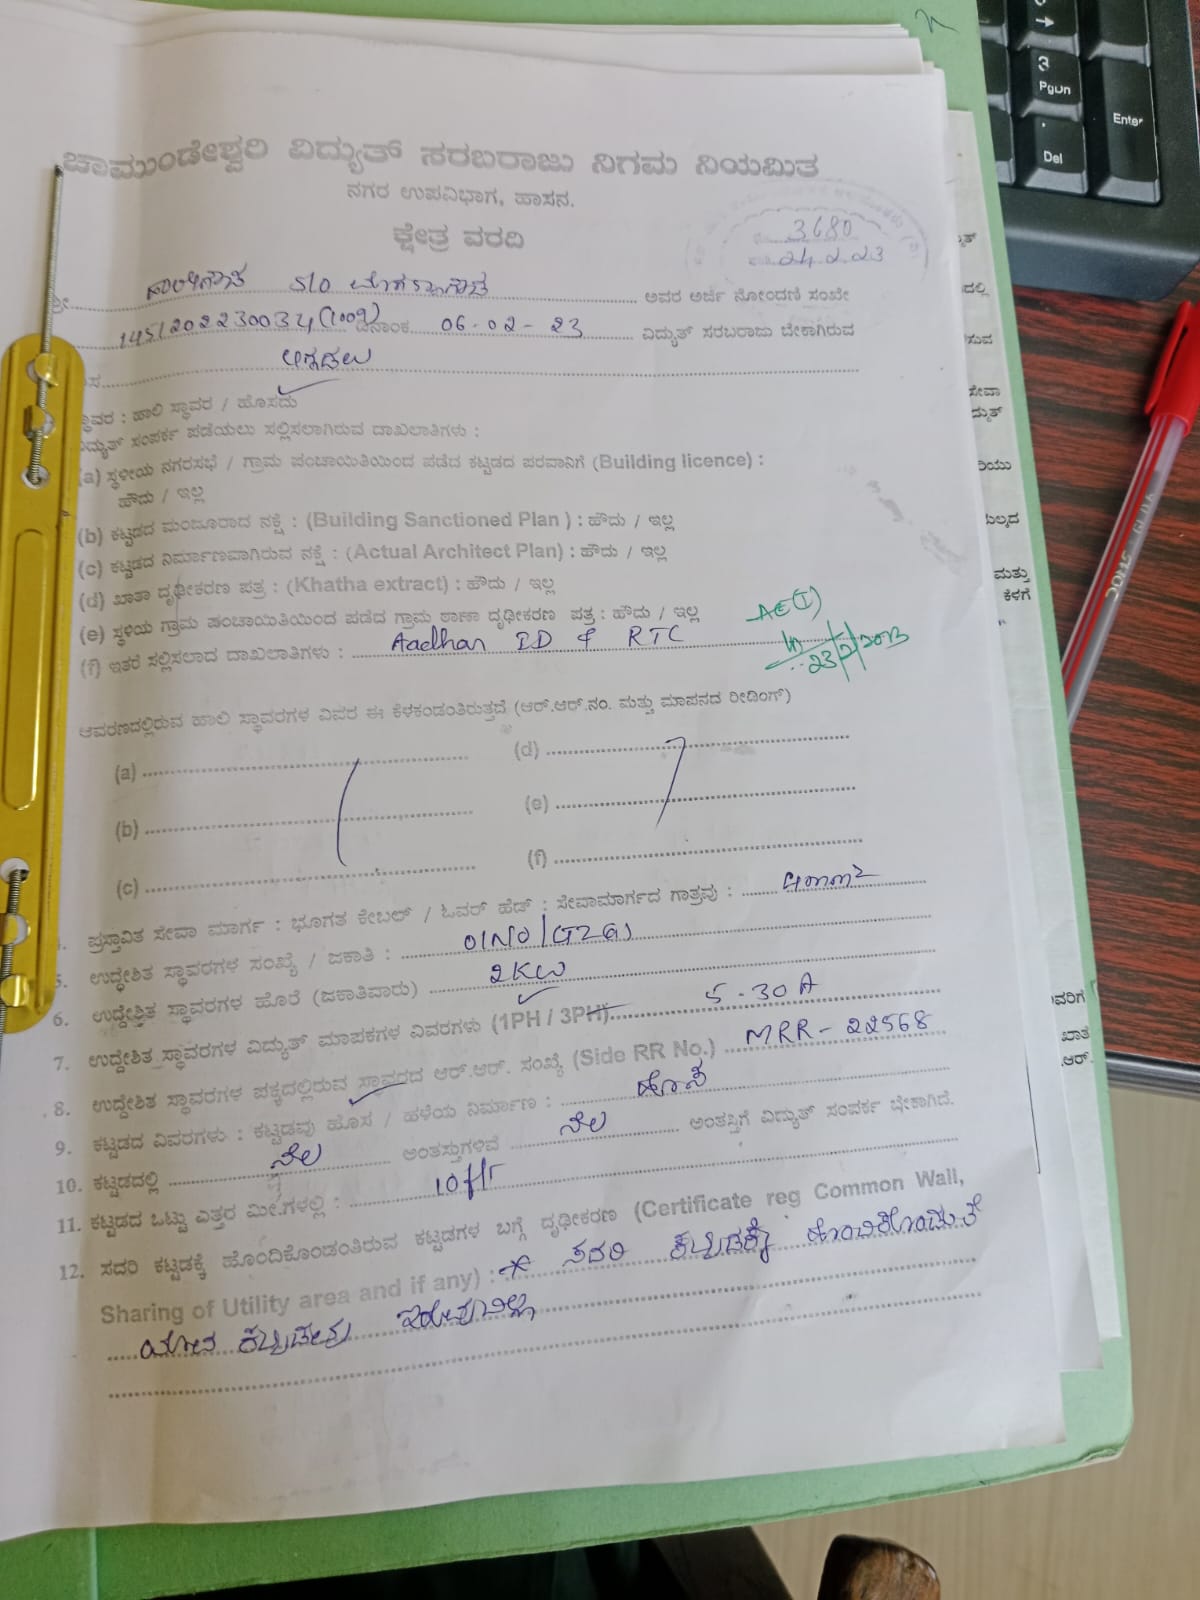 ಚಾಮುಂಡೇಶ್ವರಿ ವಿದ್ಯುತ್ ಸರಬರಾಜು ನಿಗಮ ನಿಯಮಿತ
ನಗರ ಉಪವಿಭಾಗ, ಹಾಸನ.
ಕ್ಷೇತ್ರ ವರದಿ
3680
24.2.23
S/o ಅವರ ಅರ್ಜಿ ನೋಂದಣಿ ಸಂಖ್ಯೇ
145/2022230034 (1009) ದಿನಾಂಕ 06-02-23 ವಿದ್ಯುತ್ ಸರಬರಾಜು ಬೇಕಾಗಿರುವ
ಸ್ಥಾವರ : ಹಾಲಿ ಸ್ಥಾವರ / ಹೊಸದು
ವಿದ್ಯುತ್ ಸಂಪರ್ಕ ಪಡೆಯಲು ಸಲ್ಲಿಸಲಾಗಿರುವ ದಾಖಲಾತಿಗಳು :
(a) ಸ್ಥಳೀಯ ನಗರಸಭೆ / ಗ್ರಾಮ ಪಂಚಾಯಿತಿಯಿಂದ ಪಡೆದ ಕಟ್ಟಡದ ಪರವಾನಿಗೆ (Building licence) :
ಹೌದು / ಇಲ್ಲ
(b) ಕಟ್ಟಡದ ಮಂಜೂರಾದ ನಕ್ಷೆ : (Building Sanctioned Plan ) : ಹೌದು / ಇಲ್ಲ
(c) ಕಟ್ಟಡದ ನಿರ್ಮಾಣವಾಗಿರುವ ನಕ್ಷೆ : (Actual Architect Plan) : ಹೌದು / ಇಲ್ಲ
(d) ಖಾತಾ ದೃಢೀಕರಣ ಪತ್ರ : (Khatha extract) : ಹೌದು / ಇಲ್ಲ
(e) ಸ್ಥಳಿಯ ಗ್ರಾಮ ಪಂಚಾಯಿತಿಯಿಂದ ಪಡೆದ ಗ್ರಾಮ ಠಾಣಾ ದೃಢೀಕರಣ ಪತ್ರ : ಹೌದು / ಇಲ್ಲ
AE(T)
(f) ಇತರೆ ಸಲ್ಲಿಸಲಾದ ದಾಖಲಾತಿಗಳು : Aadhar ID & RTC
23/2/2023
ಆವರಣದಲ್ಲಿರುವ ಹಾಲಿ ಸ್ಥಾವರಗಳ ವಿವರ ಈ ಕೆಳಕಂಡಂತಿರುತ್ತದೆ (ಆರ್.ಆರ್.ನಂ. ಮತ್ತು ಮಾಪನದ ರೀಡಿಂಗ್)
(a) (d)
(b) (e)
(c) (f)
ಪ್ರಸ್ತಾವಿತ ಸೇವಾ ಮಾರ್ಗ : ಭೂಗತ ಕೇಬಲ್ / ಓವರ್ ಹೆಡ್ : ಸೇವಾಮಾರ್ಗದ ಗಾತ್ರವು : 4mm2
5. ಉದ್ಧೇಶಿತ ಸ್ಥಾವರಗಳ ಸಂಖ್ಯೆ / ಜಕಾತಿ :
6. ಉದ್ದೇಶಿತ ಸ್ಥಾವರಗಳ ಹೊರೆ (ಜಕಾತಿವಾರು) 2KW
7. ಉದ್ದೇಶಿತ ಸ್ಥಾವರಗಳ ವಿದ್ಯುತ್ ಮಾಪಕಗಳ ವಿವರಗಳು (1PH / 3PH) 5-30A
8. ಉದ್ದೇಶಿತ ಸ್ಥಾವರಗಳ ಪಕ್ಕದಲ್ಲಿರುವ ಸ್ಥಾವರದ ಆರ್.ಆರ್. ಸಂಖ್ಯೆ (Side RR No.) MRR-22568
9. ಕಟ್ಟಡದ ವಿವರಗಳು : ಕಟ್ಟಡವು ಹೊಸ / ಹಳೆಯ ನಿರ್ಮಾಣ : ಹೊಸ
10. ಕಟ್ಟಡದಲ್ಲಿ ನೆಲ ಅಂತಸ್ತುಗಳಿವೆ ನೆಲ ಅಂತಸ್ತಿಗೆ ವಿದ್ಯುತ್ ಸಂಪರ್ಕ ಬೇಕಾಗಿದೆ.
11. ಕಟ್ಟಡದ ಒಟ್ಟು ಎತ್ತರ ಮೀ.ಗಳಲ್ಲಿ : 10ft
12. ಸದರಿ ಕಟ್ಟಡಕ್ಕೆ ಹೊಂದಿಕೊಂಡಂತಿರುವ ಕಟ್ಟಡಗಳ ಬಗ್ಗೆ ದೃಢೀಕರಣ (Certificate reg Common Wall,
Sharing of Utility area and if any) : * ಸದರಿ ಕಟ್ಟಡಕ್ಕೆ ಹೊಂದಿಕೊಂಡಂತೆ
ಯಾವ ಕಟ್ಟಡವು ಇರುವುದಿಲ್ಲ
3
PgUn
Enter
Del